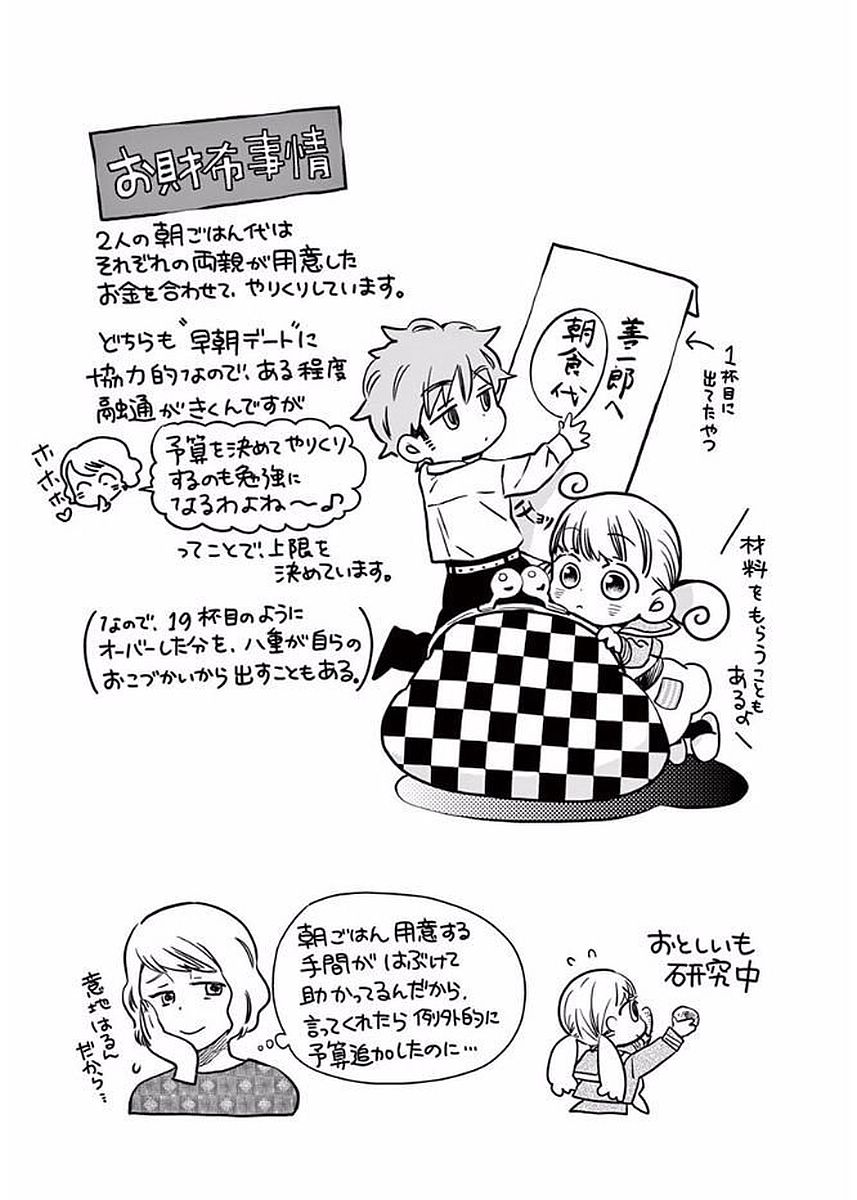 お財布事情
2人の朝ごはん代は
それぞれの両親が用意した
お金を合わせて、やりくりしています。
どちらも"早朝デート"に
協力的なので、ある程度
融通がきくんですが
ホホホ♡
予算を決めてやりくり
するのも勉強に
なるわよね〜♪
ってことで、上限を
決めています。
(なので、19杯目のように
オーバーした分を、八重が自らの
おこづかいから出すこともある。)
善一郎へ
朝食代
←1杯目に
出てたやつ
チョッ
材料をもらうことも
あるよ
朝ごはん用意する
手間がはぶけて
助かってるんだから、
言ってくれたら例外的に
予算追加したのに…
意地はるん
だから…
おとしいも
研究中